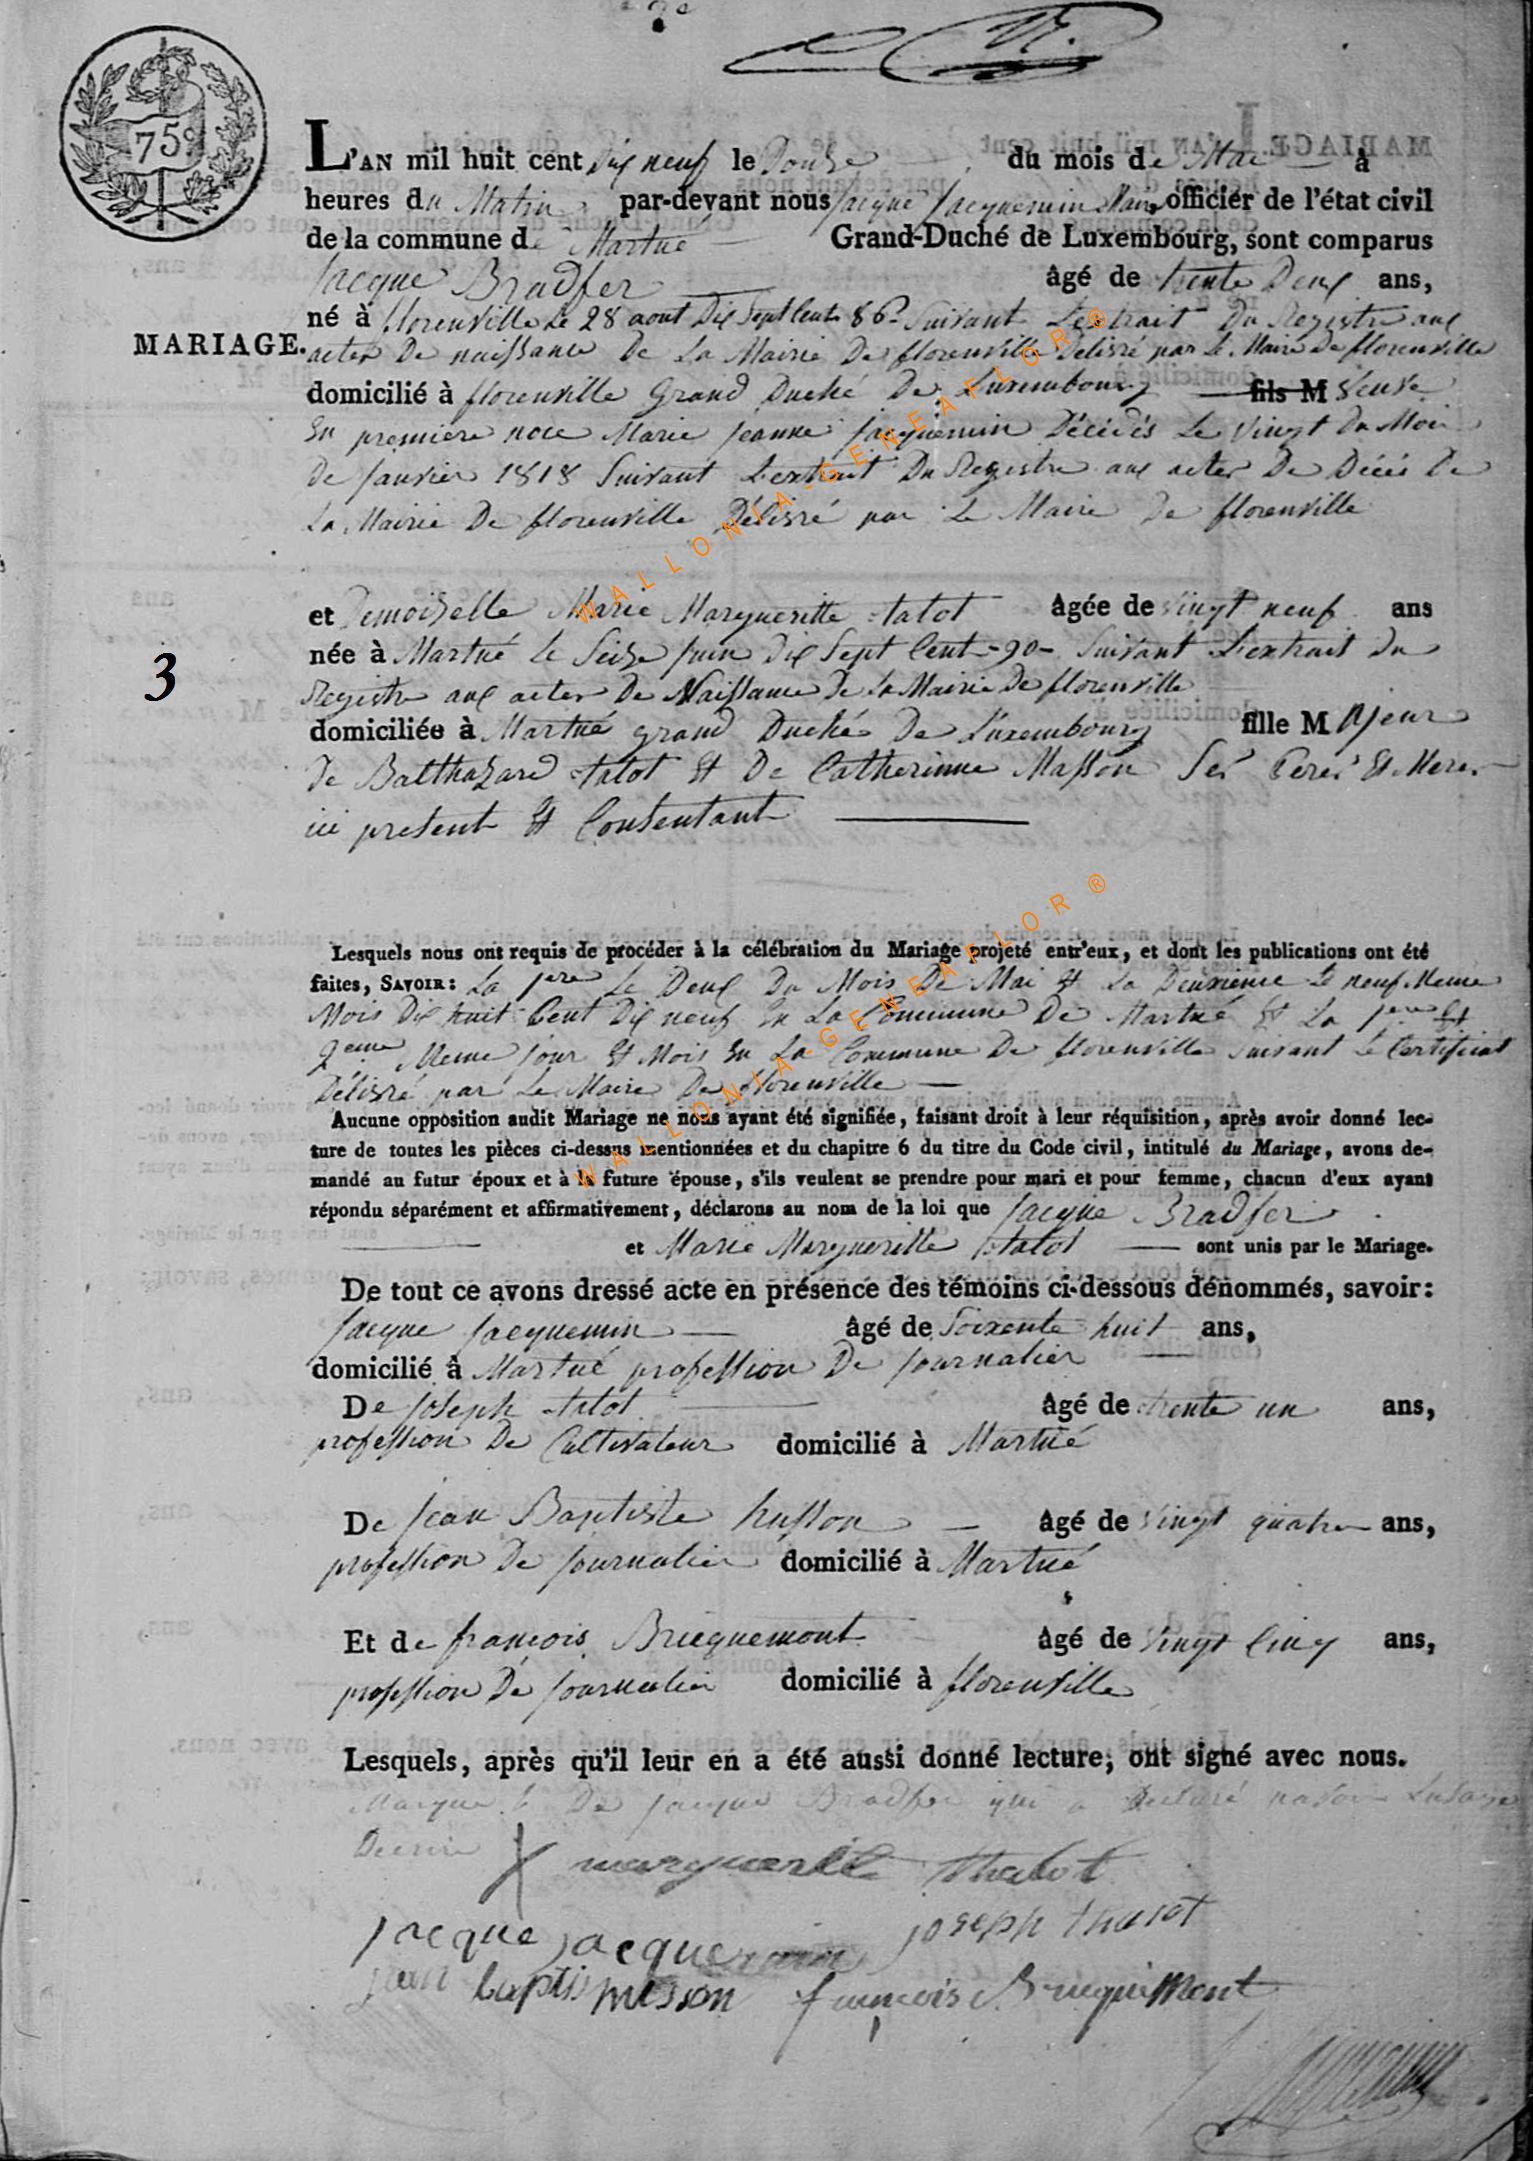 75c
L'AN mil huit cent Dix neuf le Douze du mois de Mai à
heures du Matin par-devant nous Jacque Jacquemin Maire, officier de l'état civil
de la commune de Martué Grand-Duché de Luxembourg, sont comparus
Jacque Bradfer âgé de trente Deux ans,
né à florenville Le 28 aout Dix Sept Cent 86 Suivant L'extrait Du Registre aux
MARIAGE.
actes De naissance De La Mairie De florenville Délivré par Le Maire De florenville
domicilié à florenville Grand Duché De Luxembourg fils M veuve
En première noce Marie jeanne jacquemin Décédés Le vingt Du Moi
De janvier 1818 Suivant L'extrait Du Registre aux actes De Décés De
La Mairie De florenville Délivré par Le Maire De florenville
et Demoiselle Marie Margueritte tatot âgée de vingt neuf ans
née à Martué Le Seize juin Dix Sept Cent -90- Suivant L'extrait Du
3
Registre aux actes De Naissance De La Mairie De florenville
domiciliée à Martué grand Duché De Luxembourg fille M ajeur
De Balthazard tatot Et De Catherinne Masson Ses Peres Et Meres
ici present Et Consentant
Lesquels nous ont requis de procéder à la célébration du Mariage projeté entr'eux, et dont les publications ont été
faites, SAVOIR: La 1ere Le Deux Du Mois De Mai Et La Deuxieme Le neuf Meme
Mois Dix huit Cent Dix neuf En La Commune De Martué Et La 1ere Et
2eme Meme jour Et Mois En La Commune De florenville suivant Le Certificat
Délivré par Le Maire De florenville
Aucune opposition audit Mariage ne nous ayant été signifiée, faisant droit à leur réquisition, après avoir donné lec-
ture de toutes les pièces ci-dessus mentionnées et du chapitre 6 du titre du Code civil, intitulé du Mariage, avons de-
mandé au futur époux et à la future épouse, s'ils veulent se prendre pour mari et pour femme, chacun d'eux ayant
répondu séparément et affirmativement, déclarons au nom de la loi que Jacque Bradfer
et Marie Margueritte tatot sont unis par le Mariage.
De tout ce avons dressé acte en présence des témoins ci-dessous dénommés, savoir:
Jacque jacquemin âgé de Soixente huit ans,
domicilié à Martué profession De journalier
De joseph tatot âgé de trente un ans,
profession De Cultivateur domicilié à Martué
De jean Baptiste husson âgé de vingt quatre ans,
profession De journalier domicilié à Martué
Et de françois Bricquemont âgé de vingt Cinq ans,
profession De journalier domicilié à florenville
Lesquels, après qu'il leur en a été aussi donné lecture, ont signé avec nous.
Marque De jacque Bradfer qui a Declaré
Decrire marguerite thatot
jacque jacquemin joseph thatot
jean baptis husson françois Bricquemont
WALLONIA-GENEAFLOR®
WALLONIA-GENEAFLOR®